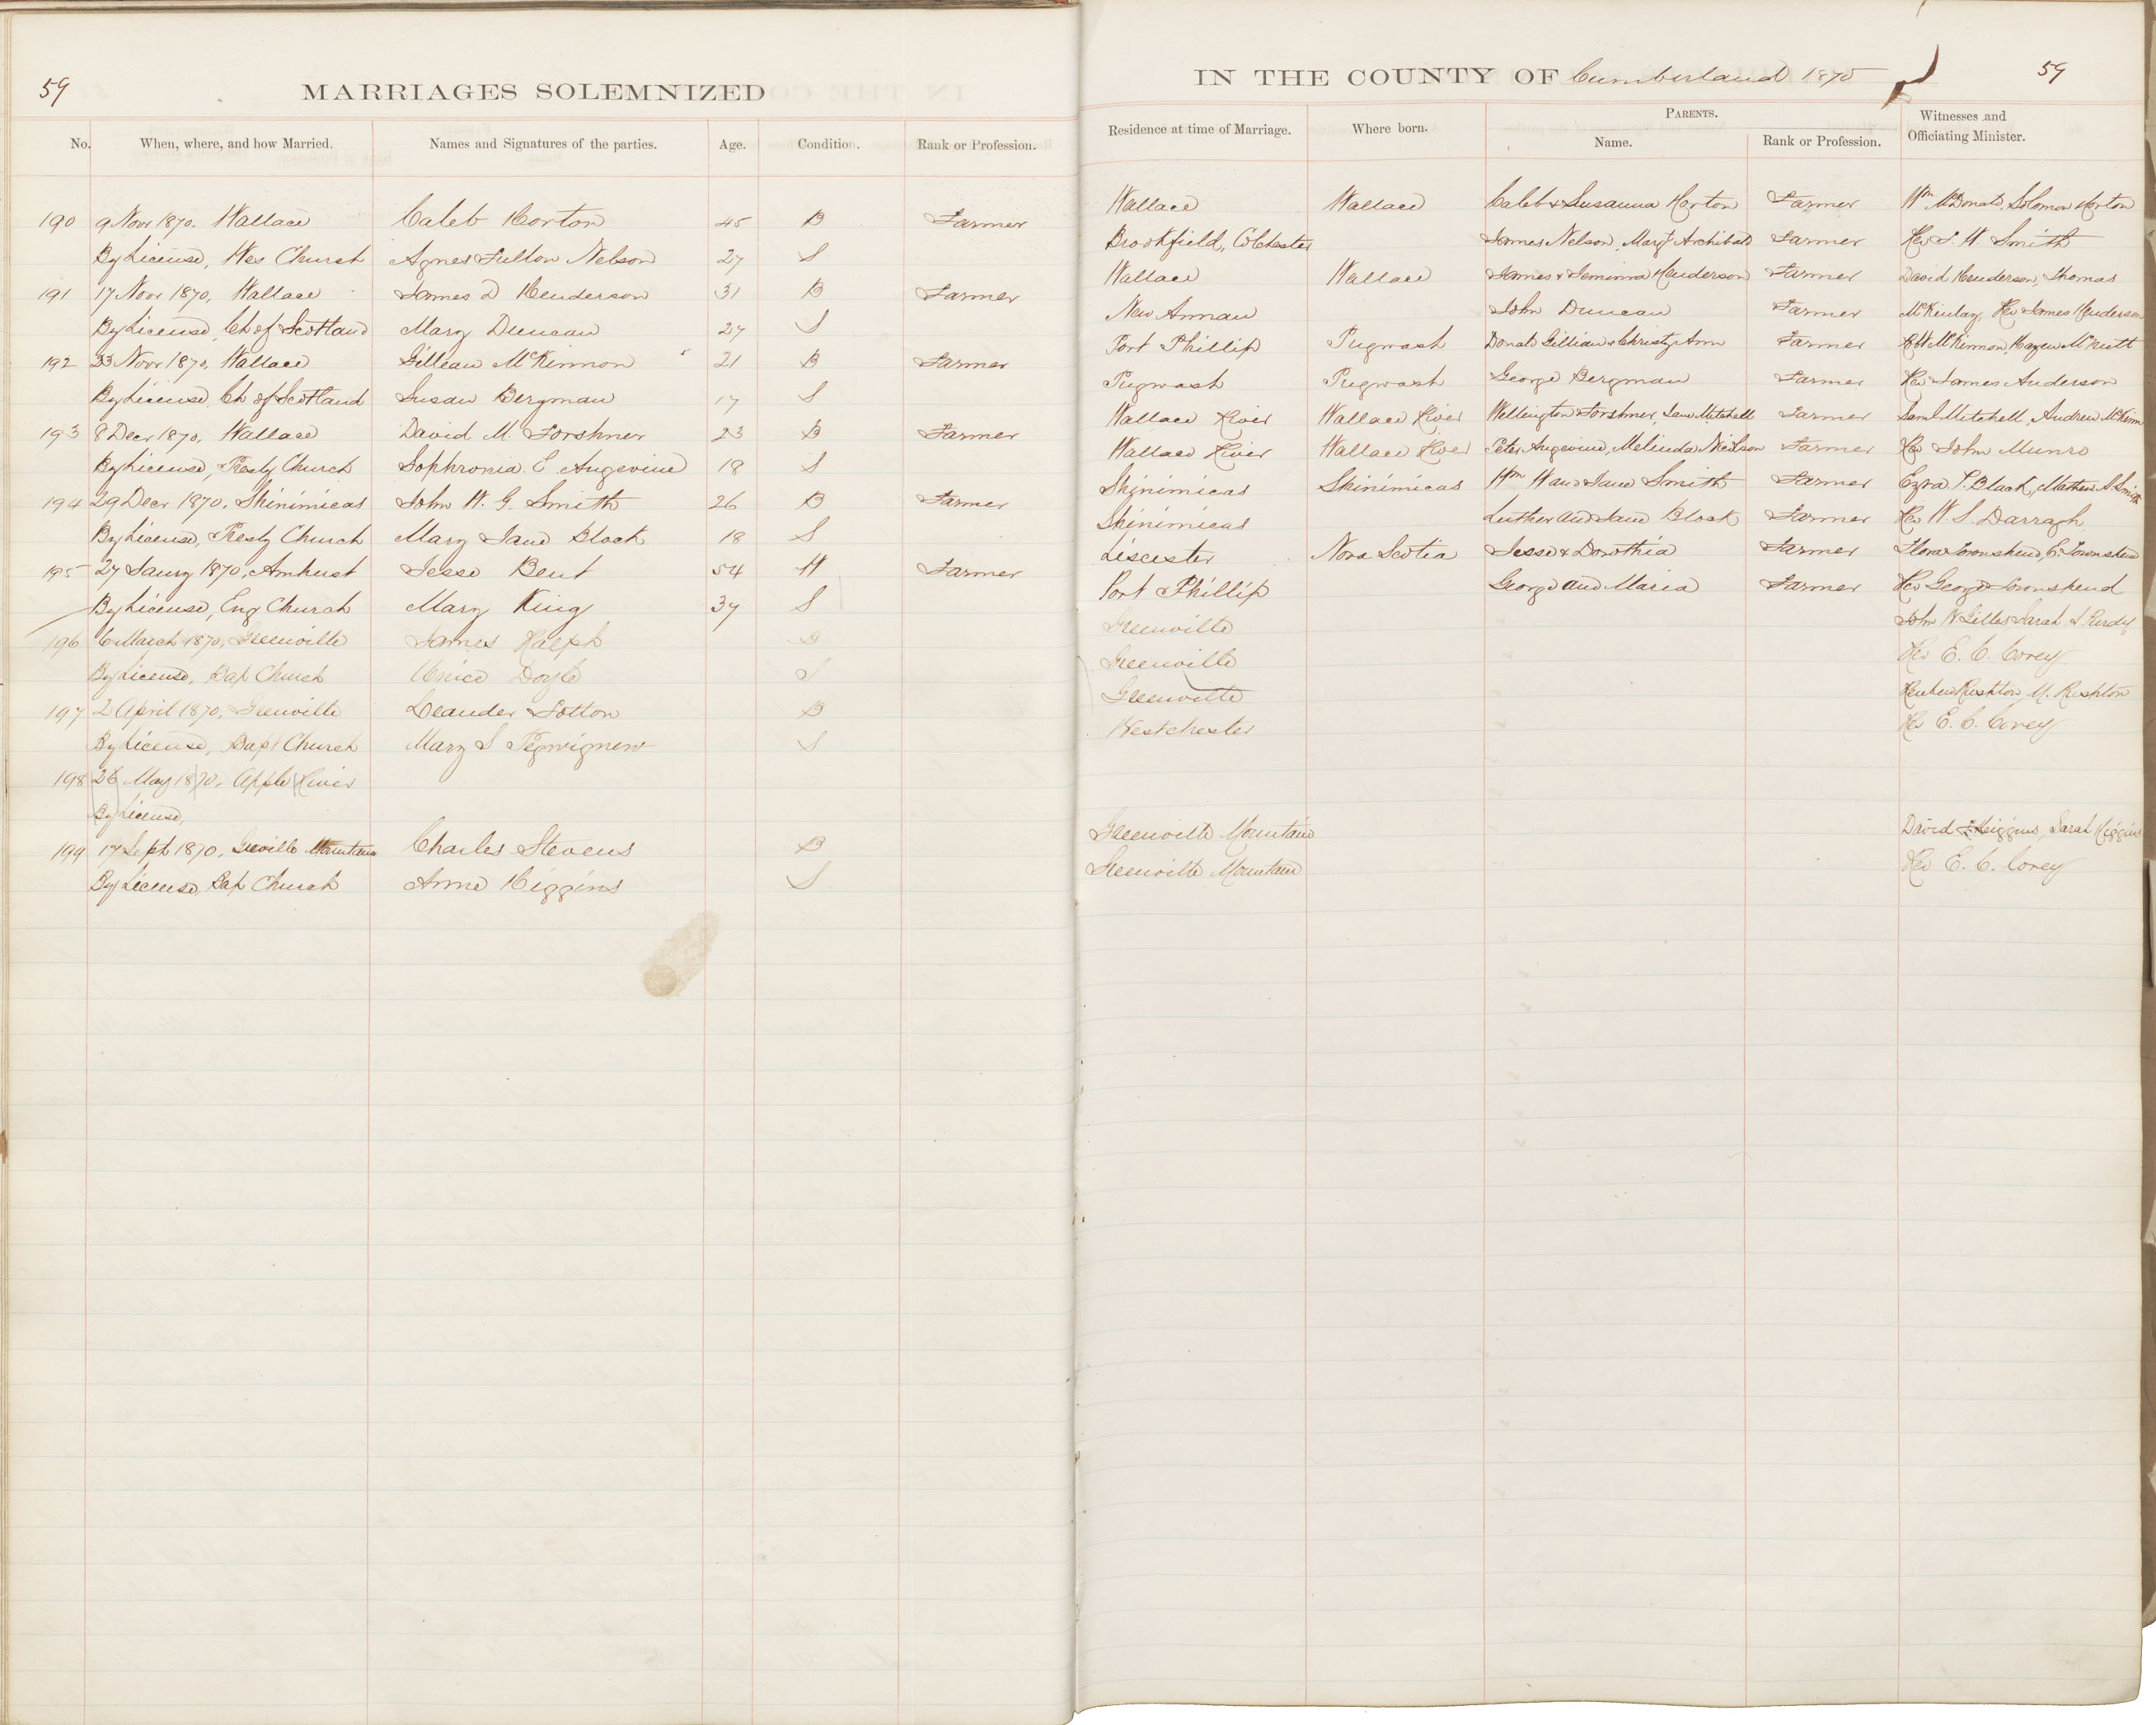 59 MARRIAGES SOLEMNIZED IN THE COUNTY OF Cumberland 1870 59
No. When, where, and how Married. Names and Signatures of the parties. Age. Condition. Rank or Profession. Residence at time of Marriage. Where born. PARENTS. Name. Rank or Profession. Witnesses and Officiating Minister.
190 9 Novr 1870, Wallace Caleb Horton 45 B Farmer Wallace Wallace Caleb & Susanna Horton Farmer Wm McDonald, Solomon Horton
By License, Wes Church Agnes Fulton Nelson 27 S Brookfield, Colchester James Nelson, Margt Archibald Farmer Rev J. W Smith
191 17 Novr 1870, Wallace James D Henderson 31 B Farmer Wallace Wallace James & Jemima Henderson Farmer David Henderson, Thomas
By License, Ch of Scotland Mary Duncan 27 S New Annan John Duncan Farmer McKinlay, Rev James Anderson
192 23 Novr 1870, Wallace Gillean McKinnon 21 B Farmer Port Phillip Pugwash Donald Gillian & Christy Ann Farmer McKinnon, Hazen McNutt
By License, Ch of Scotland Susan Bergman 17 S Pugwash Pugwash George Bergman Farmer Rev James Anderson
193 8 Decr 1870, Wallace David M. Forshner 23 B Farmer Wallace River Wallace River Wellington Forshner, Jane Mitchell Farmer Saml Mitchell, Andrew McKinn
By License, Presby Church Sophronia E Angevine 18 S Wallace River Wallace River Peter Angevine, Melinda Neilson Farmer Rev John Munro
194 29 Decr 1870, Shinimicas John W. G. Smith 26 B Farmer Shinimicas Shinimicas Wm H and Jane Smith Farmer Ezra P. Black, Mathew S. Smith
By License, Presby Church Mary Jane Black 18 S Shinimicas Luther and Jane Black Farmer Rev W. S. Darragh
195 27 Jany 1870, Amherst Jesse Bent 54 W Farmer Liscester Nova Scotia Jesse & Dorothia Farmer Flora Townshend, C. Townshend
By License, Eng Church Mary King 37 S Port Phillip George and Maria Farmer Rev George Townshend
196 6 March 1870, Greenville James Ralph B Greenville John N Gilles Sarah S Purdy
By License, Bap Church Unice Doyle S Greenville Rev E. C. Corey
197 2 April 1870, Greenville Leander Totton B Greenville Reuben Rushton M. Rushton
By License, Bapt Church Mary S S Westchester Rev E. C. Corey
198 26 May 1870, Apple River
By License,
199 17 Sept 1870, Greville Mountain Charles Stevens B Greenville Mountain David Higgins, Sarah Higgins
By License, Bap Church Anne Higgins S Greenville Mountain Rev E. C. Corey